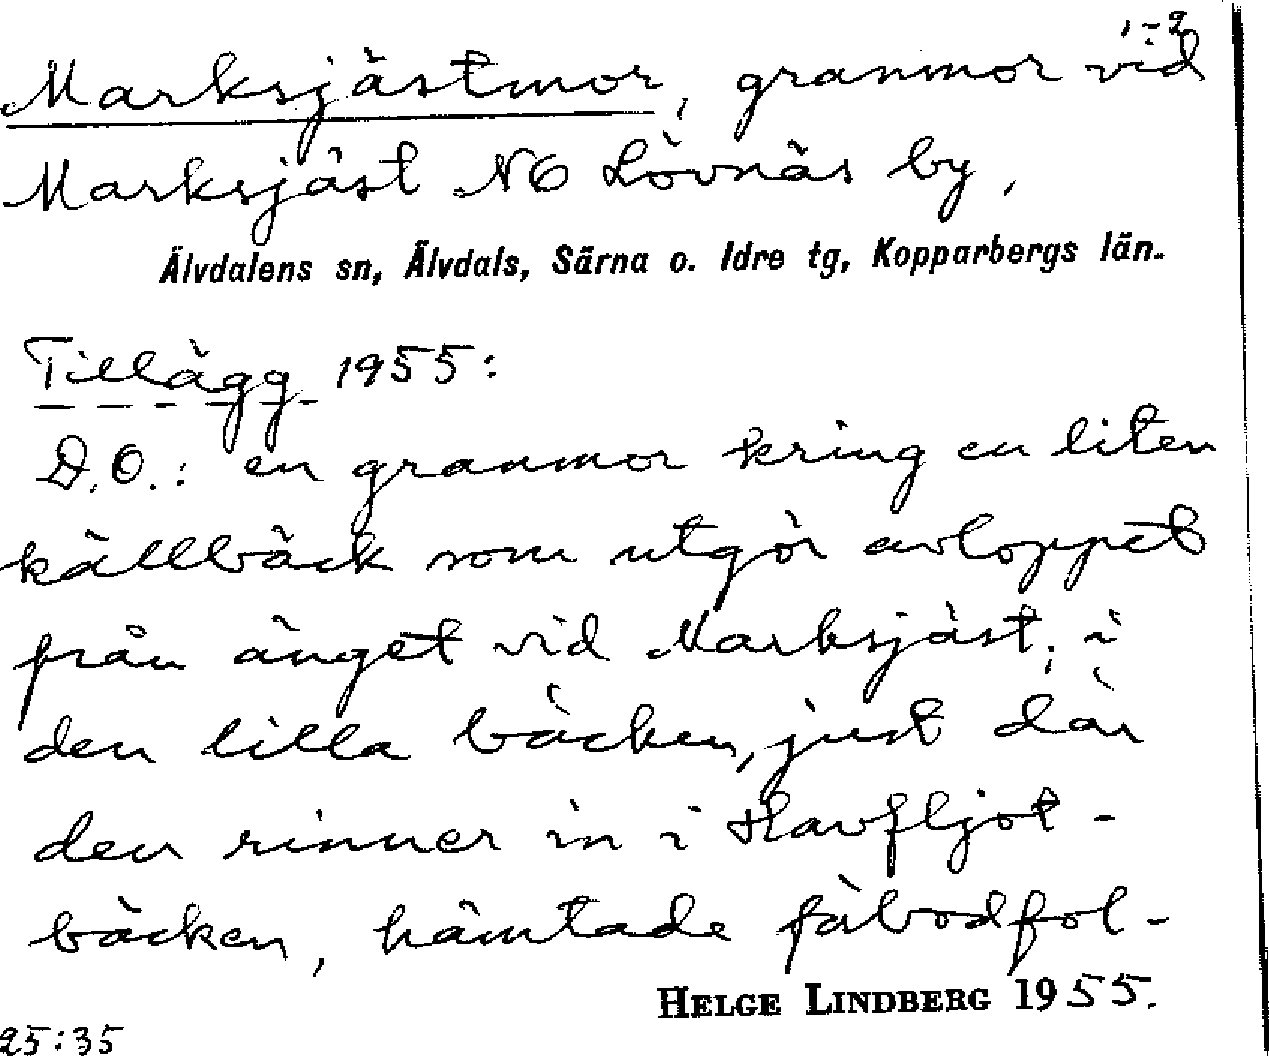 1-2
Marksjästmor, granmor vid
Marksjäst NO Lövnäs by,
Älvdalens sn, Älvdals, Särna o. Idre tg, Kopparbergs län.
Tillägg 1955:
D.O.: en granmor kring en liten
källbäck som utgör avloppet
från änget vid Marksjäst; i
den lilla bäcken, just där
den rinner in i Havfljot-
bäcken, hämtade fäbodfol-
HELGE LINDBERG 1955.
25:35